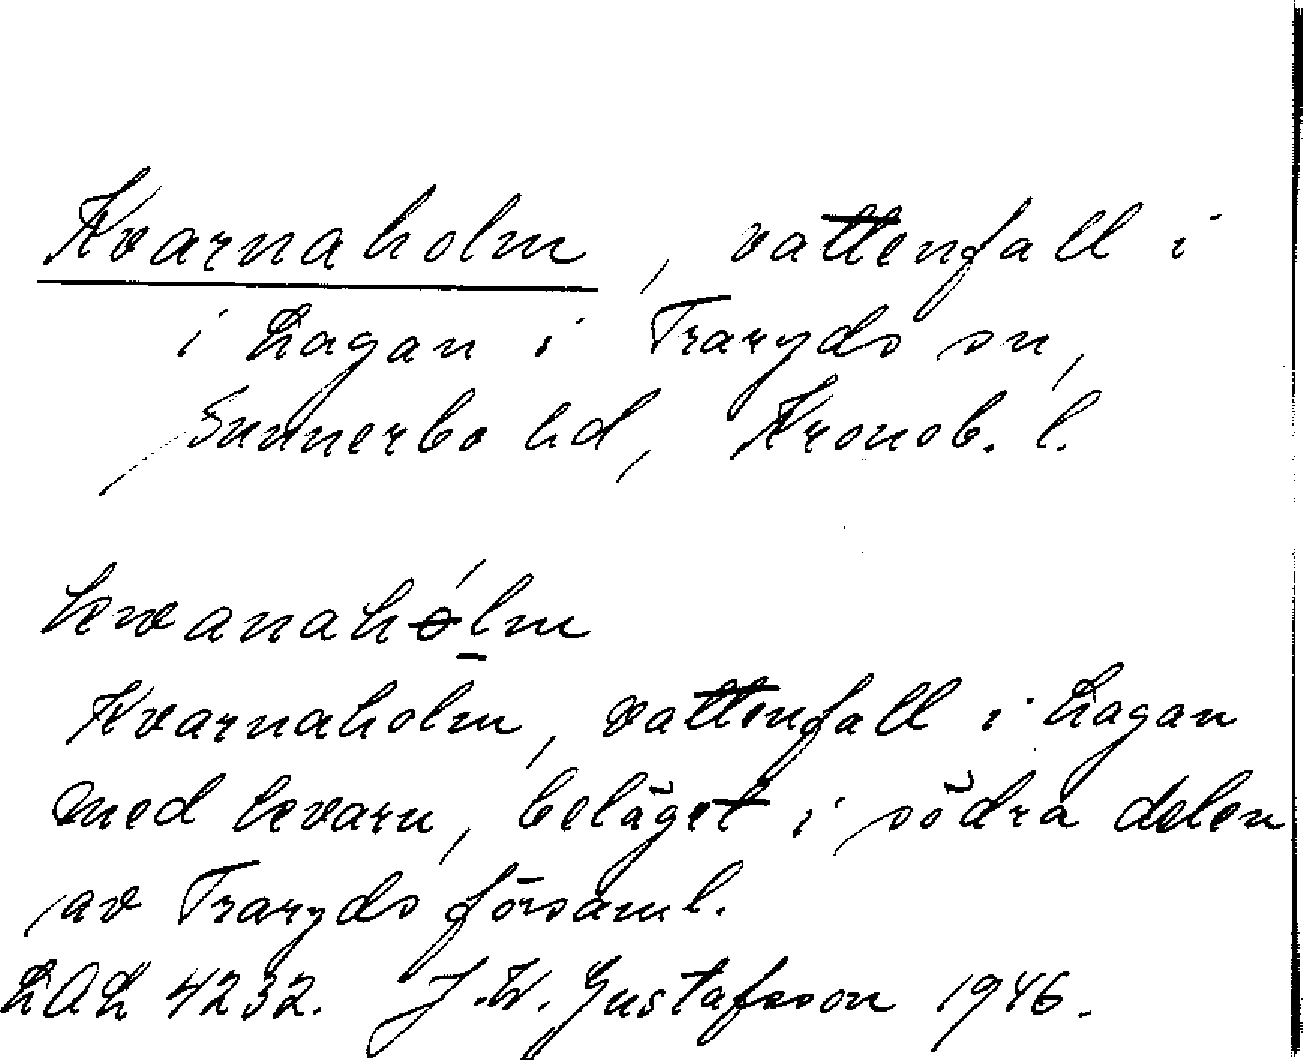 Kvarnaholm, vattenfall i
i Lagan i Traryds sn,
Sunnerbo hd, Kronob. l.
kvanahólm
Kvarnaholm, vattenfall i Lagan
med kvarn, beläget i södra delen
av Traryds församl.
LAL 4232. J.W. Gustafsson 1946.